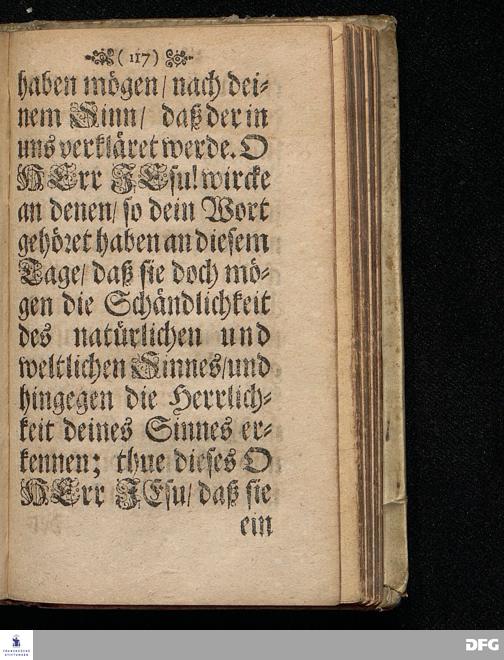 (117)
haben mögen/ nach dei-
nem Sinn/ daß der in
uns verkläret werde. O
HErr JEsu! wircke
an denen/ so dein Wort
gehöret haben an diesem
Tage/ daß sie doch mö-
gen die Schändlichkeit
des natürlichen und
weltlichen Sinnes/und
hingegen die Herrlich-
keit deines Sinnes er-
kennen; thue dieses O
HErr JEsu/ daß sie
ein
FRANCKESCHE
STIFTUNGEN
DFG